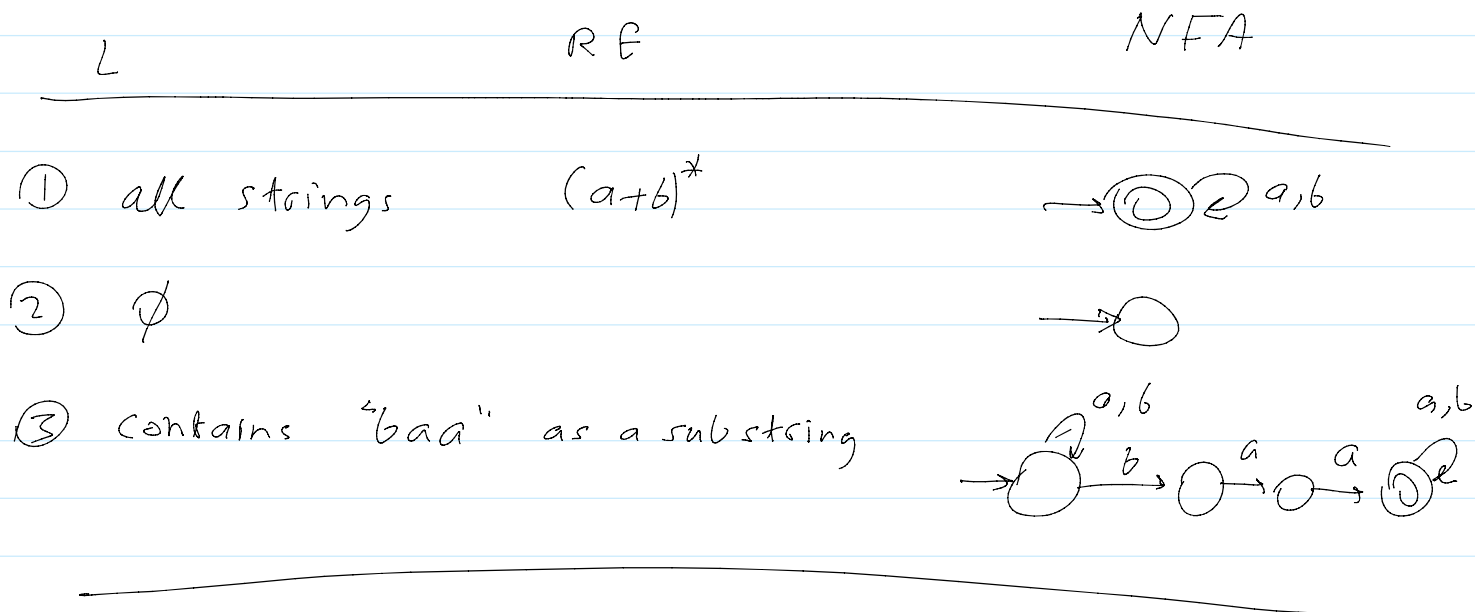 L RE NFA
① all strings (a+b)* a,b
② ∅
a,b a,b
③ contains "baa" as a substring b a a